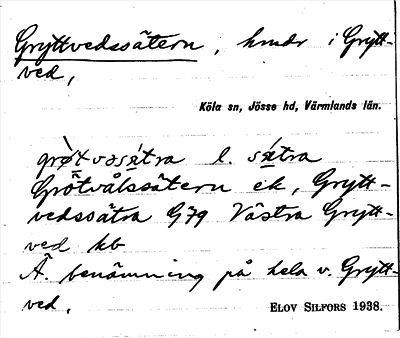 Gryttvedssätern, hmdr i Grytt-
ved,
Köla sn, Jösse hd, Värmlands län.
grø̀tvəsǽtra l. sǽtra
Grötvålssätern ek, Grytt-
vedssätra G79 Västra Grytt-
ved kb
Ä. benämning på hela v. Grytt-
ved.
ELOV SILFORS 1938.